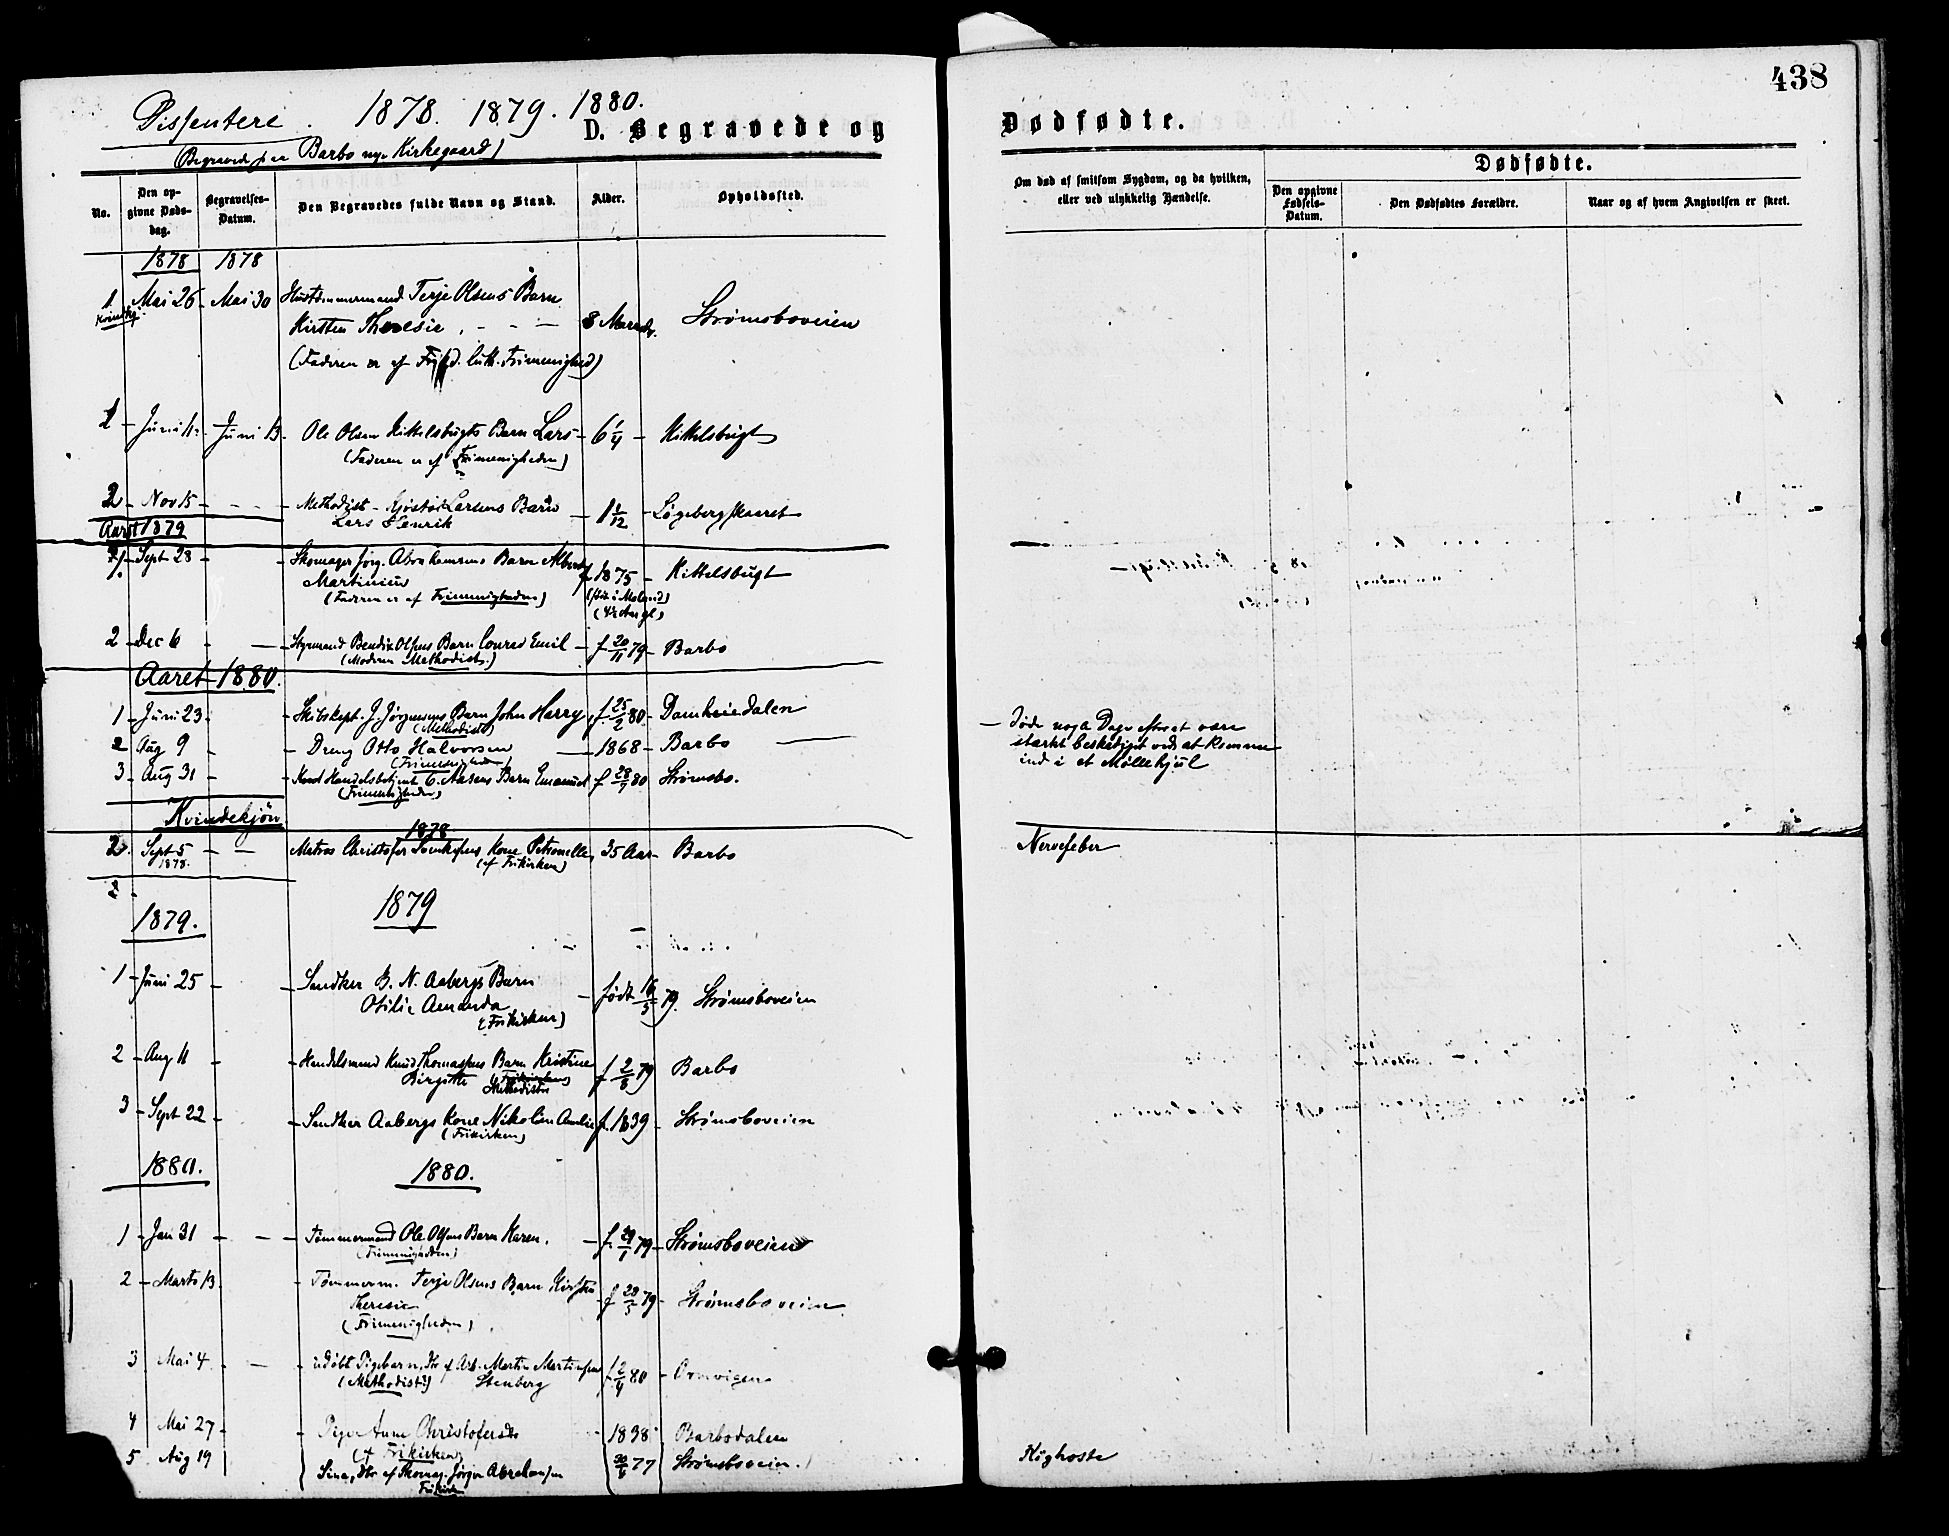 438
Dissentere. 1878. 1879. 1880.
D. Begravede og Dødfødte.
(Begravede paa Barbo nye Kirkegaard)
No.
Den op-
givne Døds-
dag.
Begravelses-
Datum.
Den Begravedes fulde Navn og Stand.
Alder.
Opholdssted.
Om død af smitsom Sygdom, og da hvilken,
eller ved ulykkelig Hændelse.
Dødfødte.
Den opgivne
Fødsels-
Datum.
Den Dødfødtes Forældre.
Naar og af hvem Angivelsen er skeet.
1878 1878
1 Mai 26 Mai 30 Terje Olsens Barn
Kirsten Theresie 8 Strømsboveien
(Faderen er af luth. Frimenighed)
Juni 11 Juni 13 Ole Olsen Kittelsbugts Barn Lars 6 1/4 Kittelsbugt
(Faderen er af Frimenigheden)
2 Nov 15 Methodist Larsens Barn
Lars Henrik 1 1/12 Løgebergskaaret
Aaret 1879
1. Sept 28 Skomager Jørg. Abrahamsens Barn Albert
Martinius f 1875 Kittelsbugt
(Faderen er af Frimenigheden)
2 Dec 6 Styrmand Bendix Olsens Barn Conrad Emil f 20/11 79 Barbo
(Moderen Methodist.)
Aaret 1880.
1 Juni 23 Skibskept. J. Jørgensens Barn John Harry f. 25/2 80 Damhuiedalen
(Methodist)
2 Aug 9 Dreng Otto Halvorsen 1868 Barbo
(Frimenigheden)
Døde nogle Dage efter at være
stærkt beskadiget ved at komme
ind i et Møllehjul
3 Aug 31 Handelsbetjent C. Aasens Barn Emanuel f 80 Strømsbo.
(Frimenigheden)
Kvindekjøn
1878
2. Sept 5 Matros Christofer Svenkesens Kone Petronelle 35 Aar Barbo Nervefeber
1878. (af Frikirken)
2
1879. 1879
1 Juni 25 Snedker B. N. Aabergs Barn
Otilie Amanda født 16/5 79. Strømsboveien
(Frikirken)
2 Aug 11 Handelsmand Knud Thomassens Barn Kristine
Birgitte (Frikirken) f 2/8 79 Barbo
Methodist
3 Sept 22 Snedker Aabergs Kone Nikoline Amalie f. 1839 Strømsboveien
(Frikirken)
1880. 1880.
1 Jan 31 Tømmermand Ole Olsens Barn Karen. f. 79 Strømsboveien
(Frimenigheden)
2 Marts 13 Tømmerm. Terje Olsens Barn Kirsten
Theresie f 79 Strømsboveien
(Frimenigheden)
3 Mai 4 udøbt Pigebarn, Dtr af Arb. Martin Martinsen
(Methodist) Stenberg f 2/4 80
4 Mai 27 Pige Anne Christofersdtr 1838 Barbodalen
(af Frikirken)
5 Aug 19 Sina, Dtr af Skomag. Jørgen Abrahamsen 77 Strømsboveien. Kighoste
Frikirken